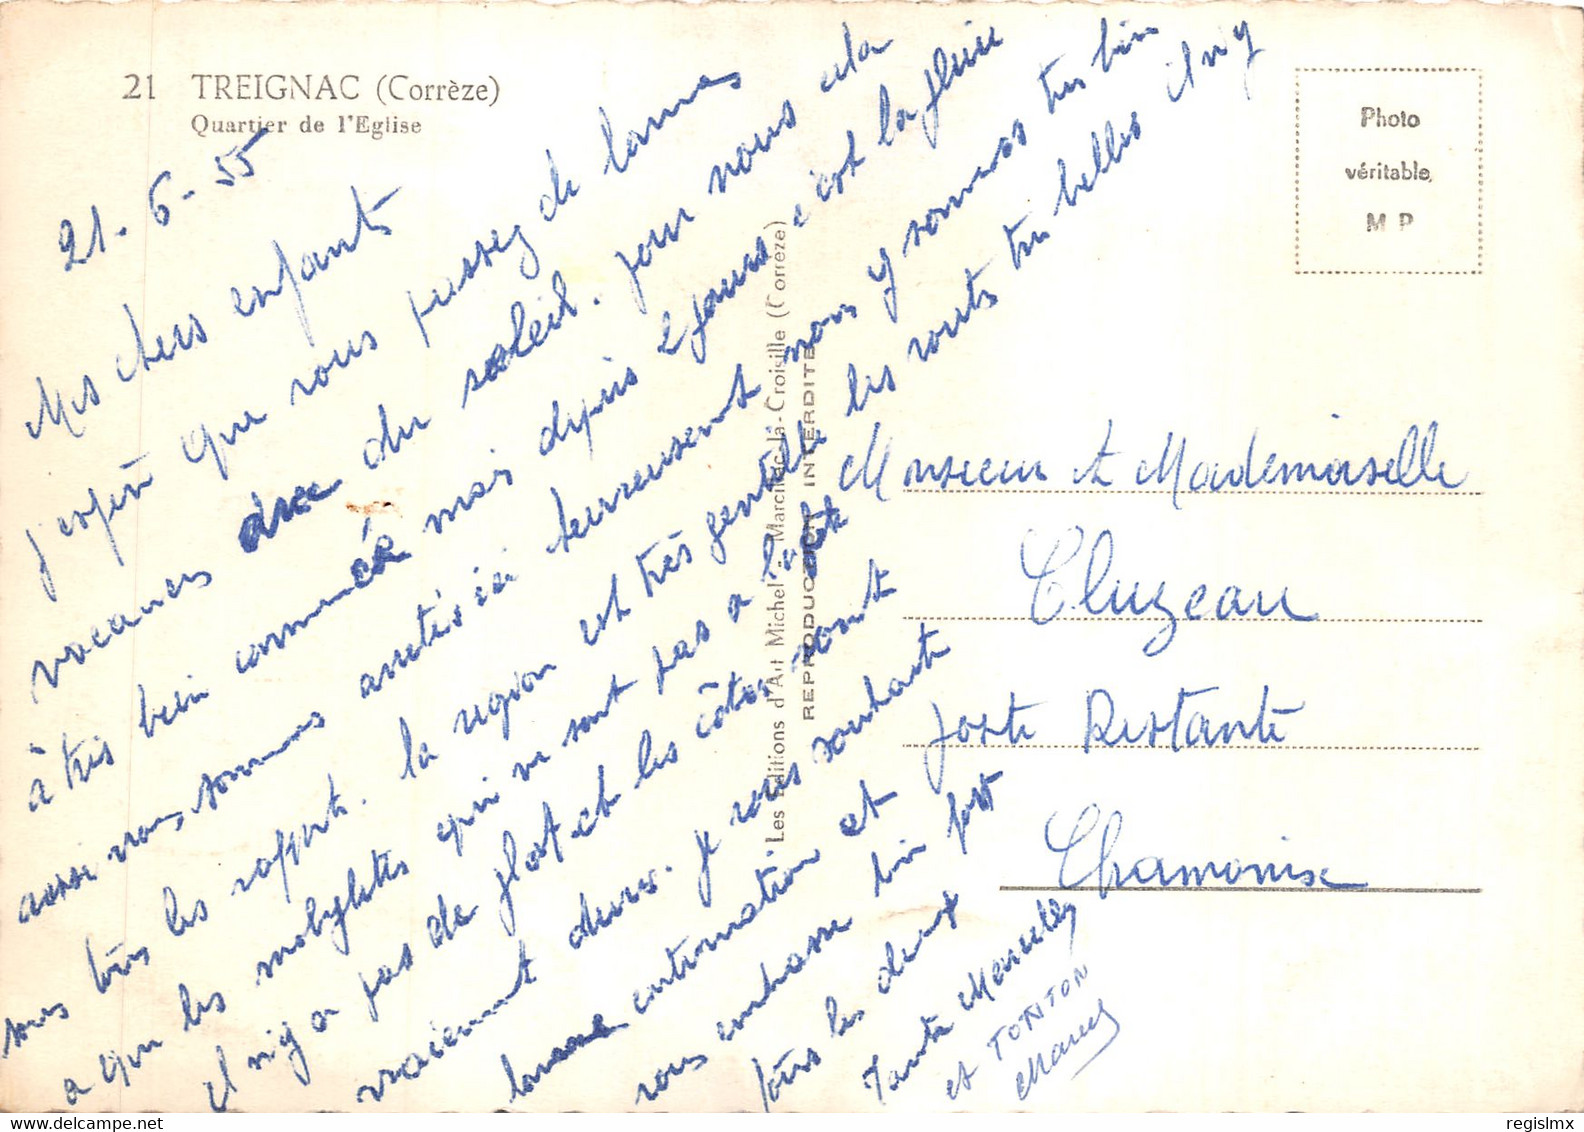 21 TREIGNAC (Corrèze)
Quartier de l'Eglise
21-6-55
Mes chers enfants
j'espère que vous passez de bonnes
vacances avec du soleil. pour nous cela
à très bien commencé mais depuis 2 jours c'est la pluie
aussi nous sommes arretés ici heureusement nous y sommes très bien
sous tous les rapports. la region est très gentille les routes très belles il n'y
a que les mobylettes qui ne sont pas a la fête
il n'y a pas de plat et les côtes sont
vraiement dures. je vous souhaite
bonne continuation et
vous embrasse bien fort
tous les deux
Tante Marcelle
et TONTON
Marcel
Les Editions d'Art Michel - Marcillac-la-Croisille (Corrèze)
REPRODUCTION INTERDITE
Photo
véritable
M P
Monsieur et Mademoiselle
Cluzeau
Poste Restante
Chamonix
www.delcampe.net
regislmx